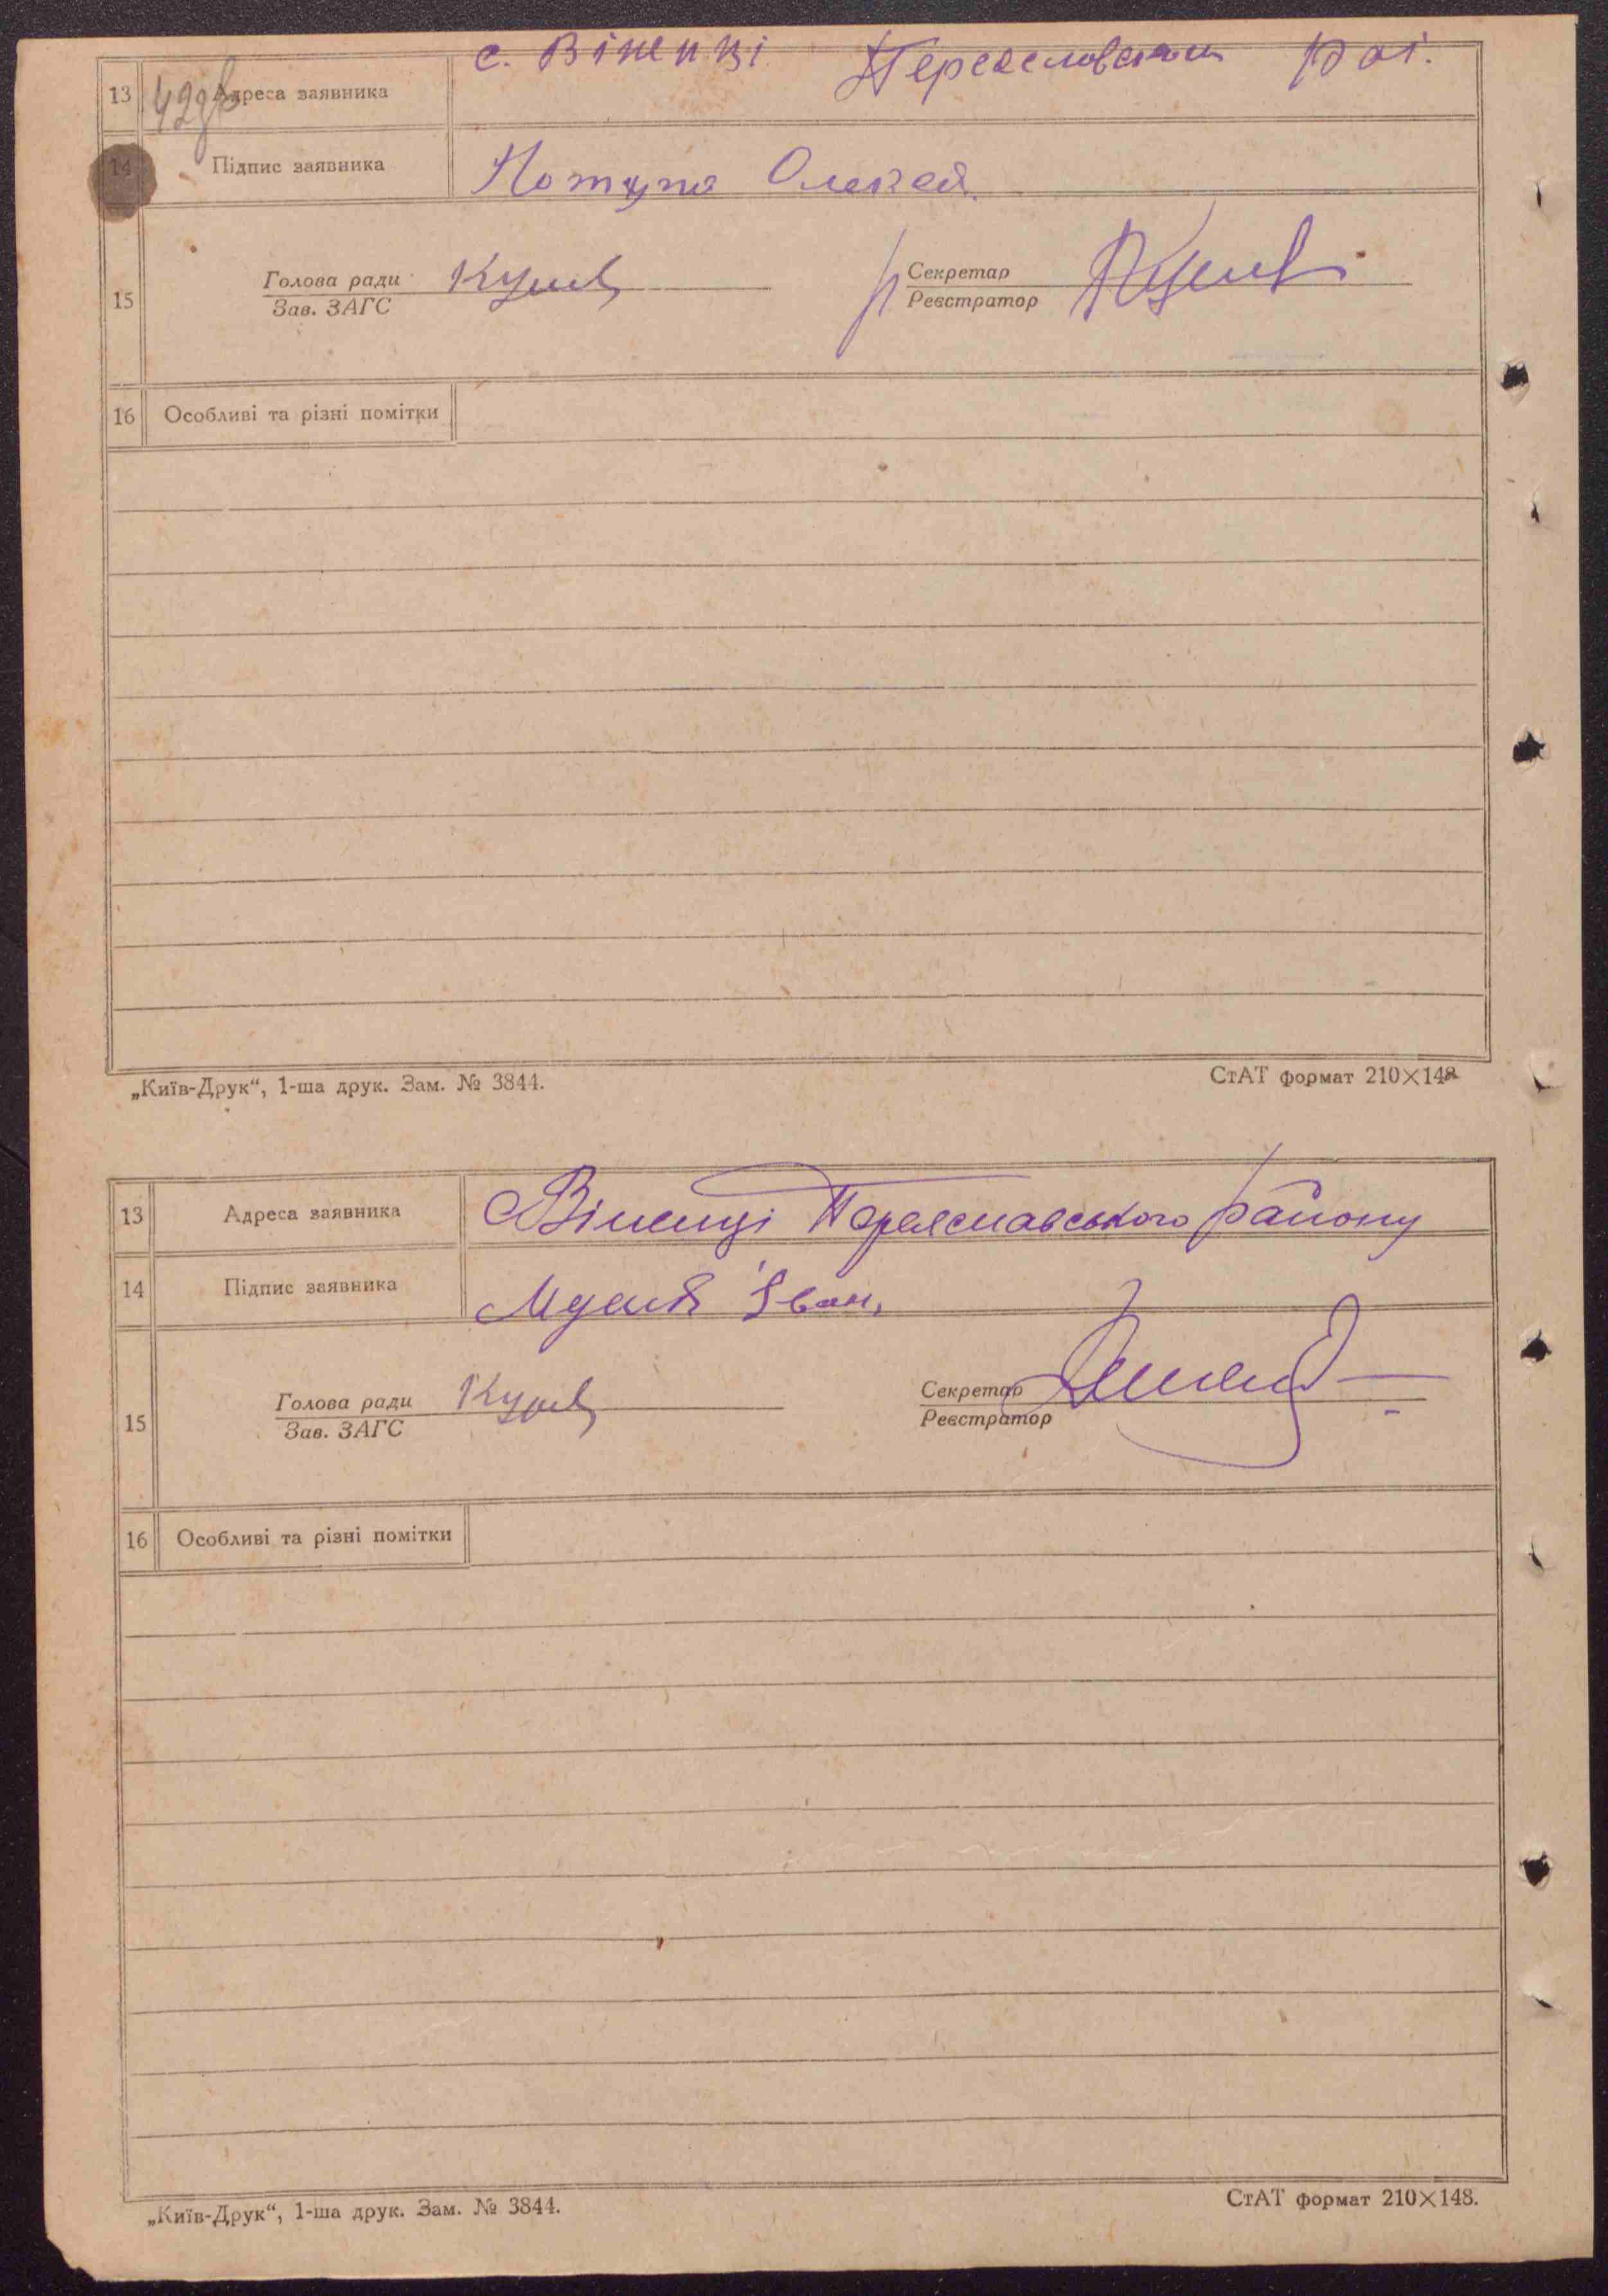 с. Віненці Переяславськ рai.
13 42зв Адреса заявника
14 Підпис заявника Потупа Олексей.
Голова ради Секретар
15 Зав. ЗАГС Реєстратор
16 Особливі та різні помітки
„Київ-Друк“, 1-ша друк. Зам. № 3844. СтАТ формат 210×148
13 Адреса заявника с Віненці Переяславського району
14 Підпис заявника Іван,
Голова ради Секретар
15 Зав. ЗАГС Реєстратор
16 Особливі та різні помітки
„Київ-Друк“, 1-ша друк. Зам. № 3844. СтАТ формат 210×148.